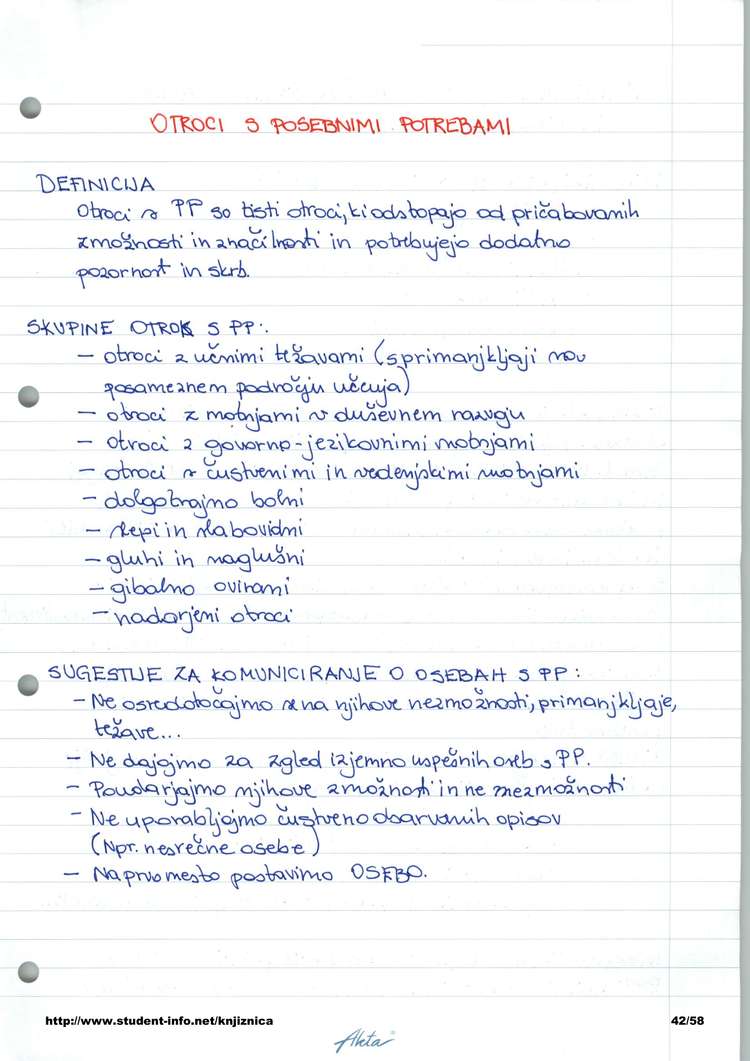 OTROCI S POSEBNIMI POTREBAMI
DEFINICIJA
Otroci s PP so tisti otroci, ki odstopajo od pričakovanih
zmožnosti in značilnosti in potrebujejo dodatno
pozornost in skrb.
SKUPINE OTROK S PP:
- otroci z učnimi težavami (s primanjkljaji na
posameznem področju učenja)
- otroci z motnjami v duševnem razvoju
- otroci z govorno-jezikovnimi motnjami
- otroci s čustvenimi in vedenjskimi motnjami
- dolgotrajno bolni
- slepi in slabovidni
- gluhi in naglušni
- gibalno ovirani
- nadarjeni otroci
SUGESTIJE ZA KOMUNICIRANJE O OSEBAH S PP:
- Ne osredotočajmo se na njihove nezmožnosti, primanjkljaje,
težave...
- Ne dajajmo za zgled izjemno uspešnih oseb s PP.
- Poudarjajmo njihove zmožnosti in ne nezmožnosti
- Ne uporabljajmo čustveno obarvanih opisov
(Npr. nesrečne osebe)
- Na prvo mesto postavimo OSEBO.
http://www.student-info.net/knjiznica 42/58
Akta